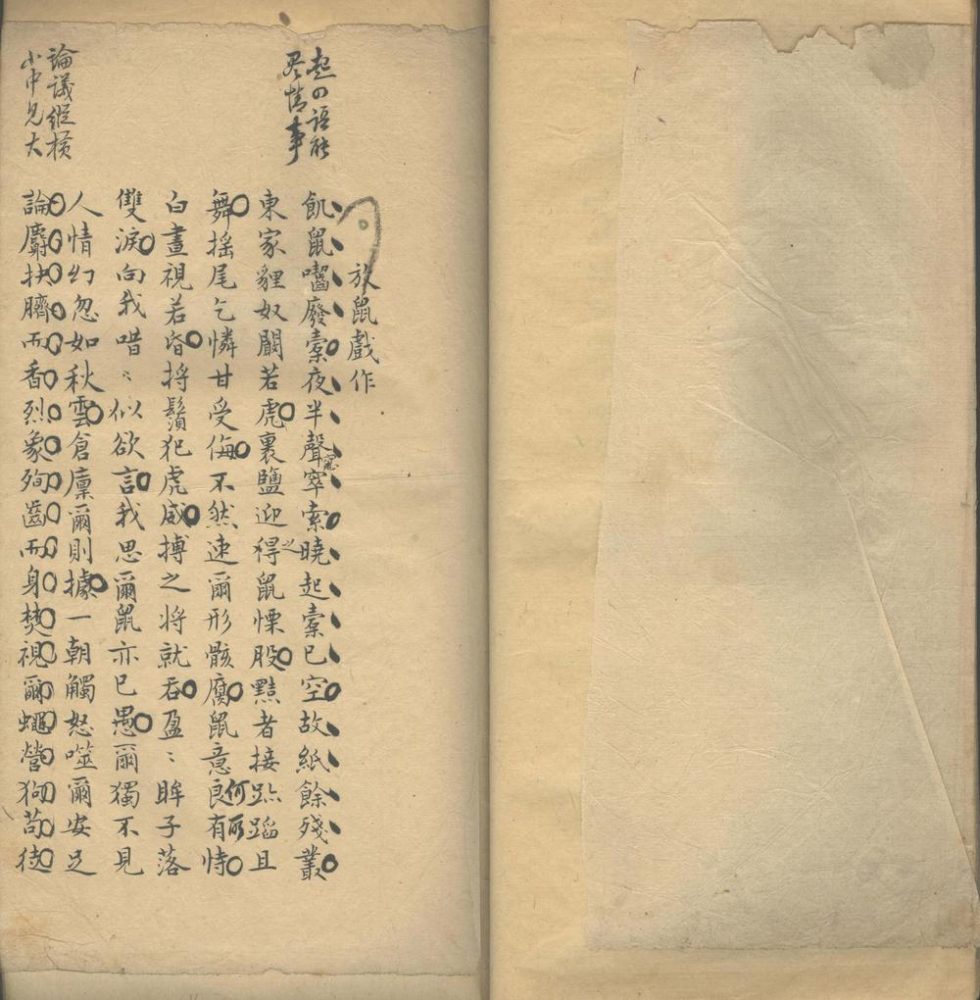 起四語能
尽情事
放鼠戲作
飢鼠嚙廢橐夜半聲窸窣索曉起橐已空故紙餘殘叢
東家貍奴鬭若虎裹鹽迎得之鼠慄股黠者接跡蹈且
舞搖尾乞憐甘受侮不然速爾形骸腐鼠意良何所有恃
白晝視若昏捋鬚犯虎威搏之將就吞盈〻眸子落
雙淚向我唶〻似欲言我思爾鼠亦已愚爾獨不見
人情幻忽如秋雲倉廩爾則據一朝觸怒噬爾安足
論麝抉臍而香烈象殉齒而身焚視爾蠅營狗苟徒
論議縱横
小中見大